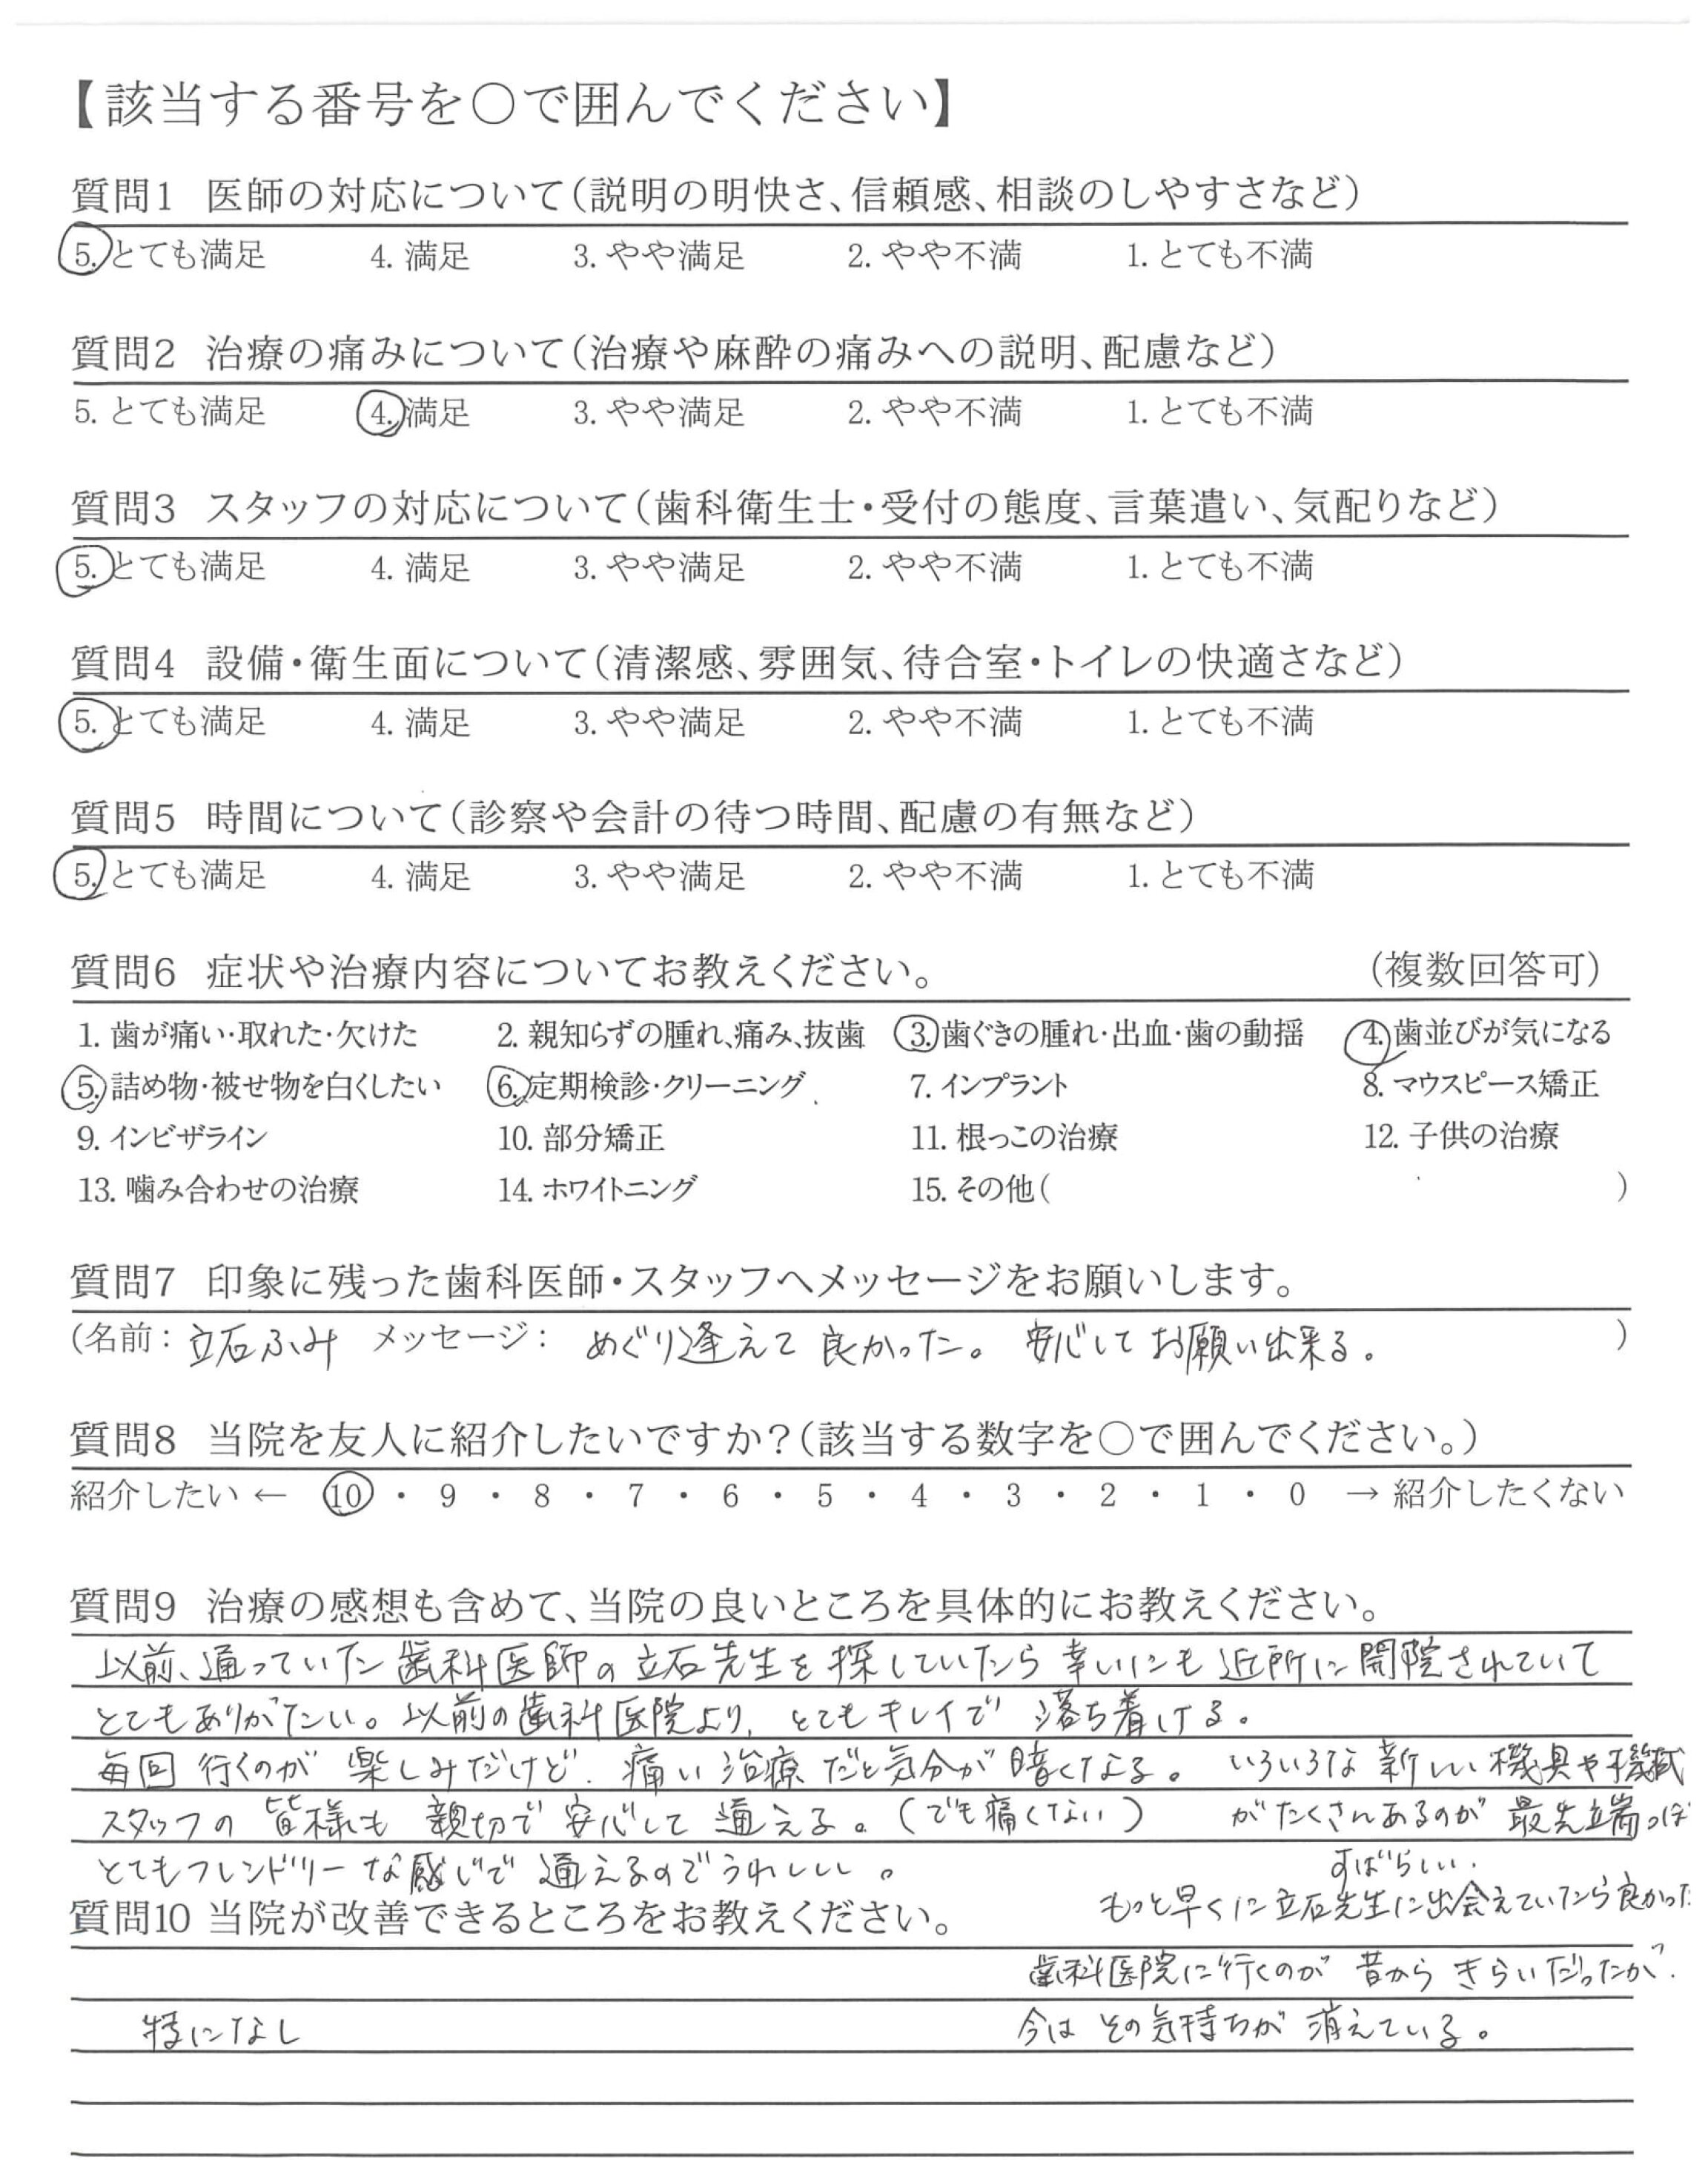 【該当する番号を〇で囲んでください】
質問1 医師の対応について(説明の明快さ、信頼感、相談のしやすさなど)
5. とても満足 4. 満足 3. やや満足 2. やや不満 1. とても不満
質問2 治療の痛みについて(治療や麻酔の痛みへの説明、配慮など)
5. とても満足 4. 満足 3. やや満足 2. やや不満 1. とても不満
質問3 スタッフの対応について(歯科衛生士・受付の態度、言葉遣い、気配りなど)
5. とても満足 4. 満足 3. やや満足 2. やや不満 1. とても不満
質問4 設備・衛生面について(清潔感、雰囲気、待合室・トイレの快適さなど)
5. とても満足 4. 満足 3. やや満足 2. やや不満 1. とても不満
質問5 時間について(診察や会計の待つ時間、配慮の有無など)
5. とても満足 4. 満足 3. やや満足 2. やや不満 1. とても不満
質問6 症状や治療内容についてお教えください。 (複数回答可)
1. 歯が痛い・取れた・欠けた 2. 親知らずの腫れ、痛み、抜歯 3. 歯ぐきの腫れ・出血・歯の動揺 4. 歯並びが気になる
5. 詰め物・被せ物を白くしたい 6. 定期検診・クリーニング 7. インプラント 8. マウスピース矯正
9. インビザライン 10. 部分矯正 11. 根っこの治療 12. 子供の治療
13. 噛み合わせの治療 14. ホワイトニング 15. その他( )
質問7 印象に残った歯科医師・スタッフへメッセージをお願いします。
(名前: 立石ふみ メッセージ: めぐり逢えて良かった。 安心してお願い出来る。 )
質問8 当院を友人に紹介したいですか?(該当する数字を〇で囲んでください。)
紹介したい ← 10 ・ 9 ・ 8 ・ 7 ・ 6 ・ 5 ・ 4 ・ 3 ・ 2 ・ 1 ・ 0 → 紹介したくない
質問9 治療の感想も含めて、当院の良いところを具体的にお教えください。
以前、通っていた歯科医師の立石先生を探していたら幸いにも近所に開院されていて
とてもありがたい。以前の歯科医院より、とてもキレイで 落ち着ける。
毎回 行くのが 楽しみだけど、痛い治療だと気分が暗くなる。 いろいろな新しい機具や機械
スタッフの 皆様も 親切で 安心して 通える。(でも痛くない) がたくさんあるのが 最先端っぽ
とてもフレンドリーな感じで 通えるのでうれしい。 すばらしい。
もっと早くに立石先生に出会えていたら良かった
質問10 当院が改善できるところをお教えください。
歯科医院に行くのが 昔から きらいだったが、
特になし 今は その気持ちが 消えている。